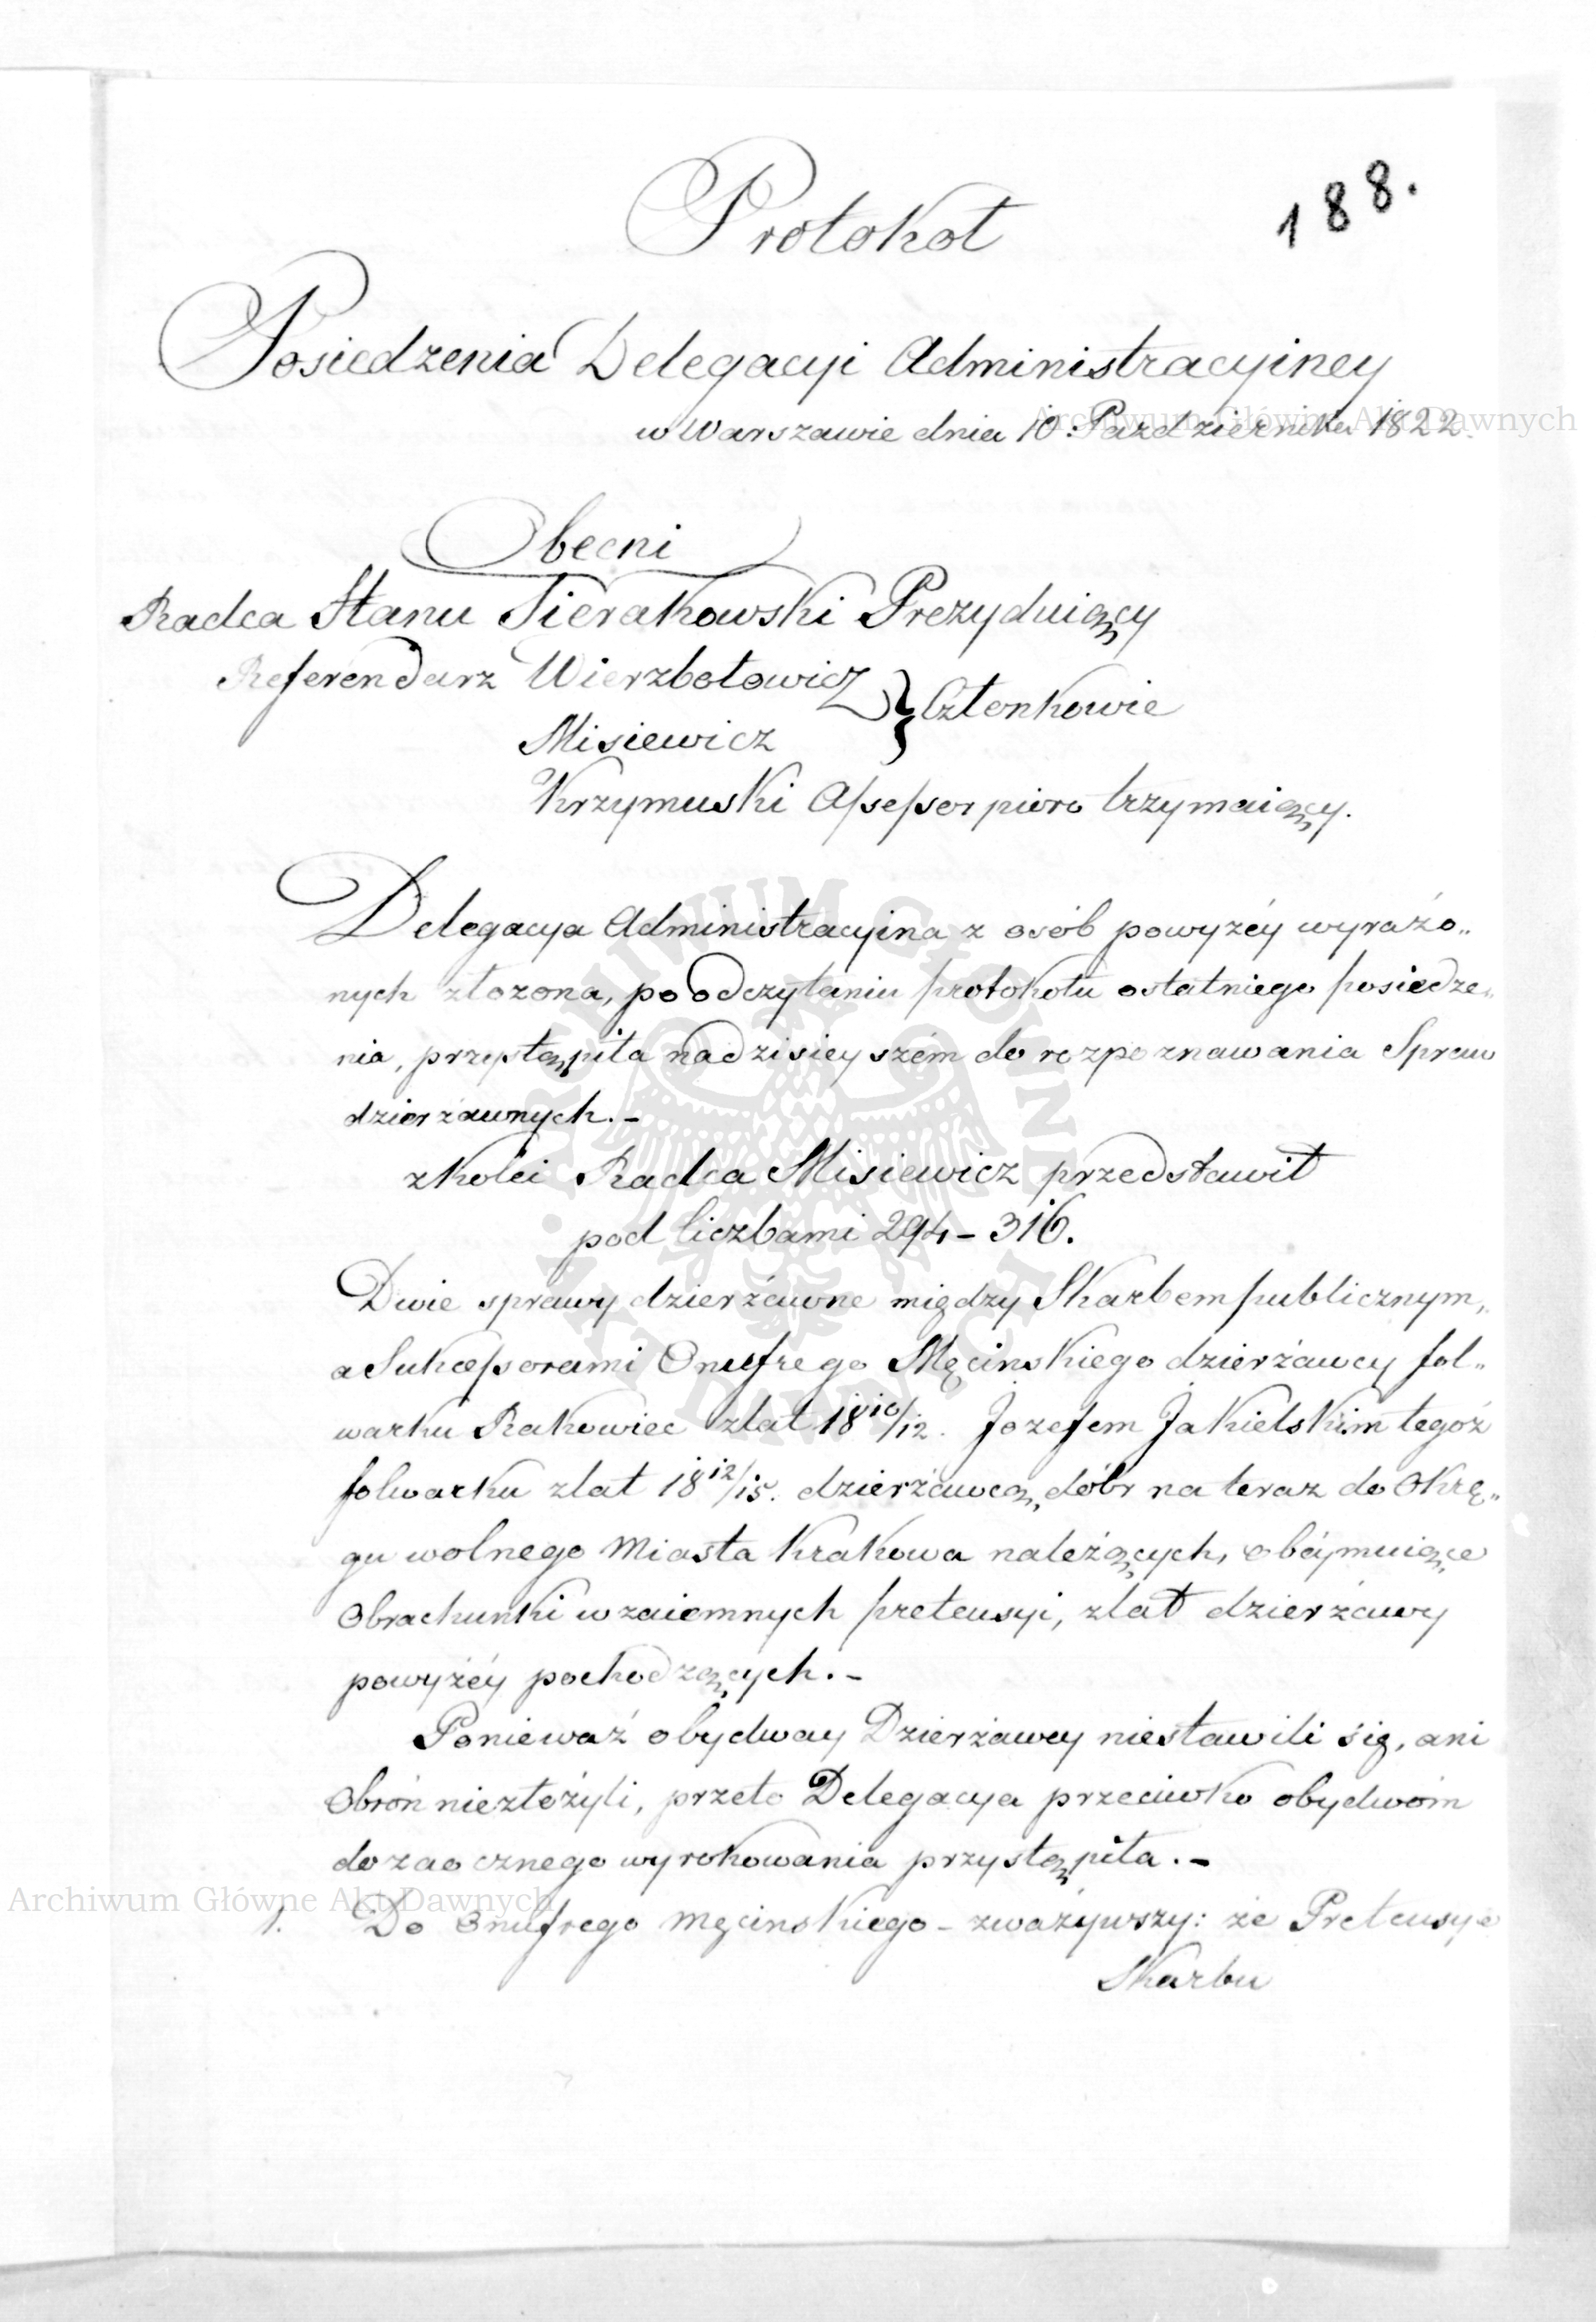 188.
Protokoł
Posiedzenia Delegacyi Administracyiney
w Warszawie dnia 10: Pazdziernika 1822.
Obecni
Radca Stanu Sierakowski Prezyduiący
Referendarz Wierzbołowicz } Członkowie
Misiewicz
Krzymuski Assessor pioro trzymaiący.
Delegacya Administracyina z osób powyżéy wyrażo„
nych złozona, po odczytaniu protokołu ostatniego posiedze„
nia, przystąpiła na dzisieyszém do rozpoznawania Spraw
dzierżawnych.–
z kolei Radca Misiewicz przedstawił
pod liczbami 294 – 316.
Dwie sprawy dzierżawne między Skarbem publicznym,
a Sukcessorami Onufrego Męcinskiego dzierżawcy fol„
warku Rakowiec z lat 18 10/12. Jozefem Jakielskim tegoż
folwarku z lat 18 12/15. dzierżawcą, dóbr na teraz do Okrę„
gu wolnego Miasta Krakowa należących, obéymuiące
Obrachunki wzaiemnych pretensyi, z lat dzierżawy
powyżéy pochodzących.–
Ponieważ obydway Dzierżawcy niestawili się, ani
Obrón niezłożyli, przeto Delegacya przeciwko obydwóm
do zaocznego wyrokowania przystąpiła.–
1. Do Onufrego Męcinskiego – zważywszy: że Pretensye
Skarbu
Archiwum Główne Akt Dawnych
ARCHIWUM GŁÓWNE AKT DAWNYCH
Archiwum Główne Akt Dawnych